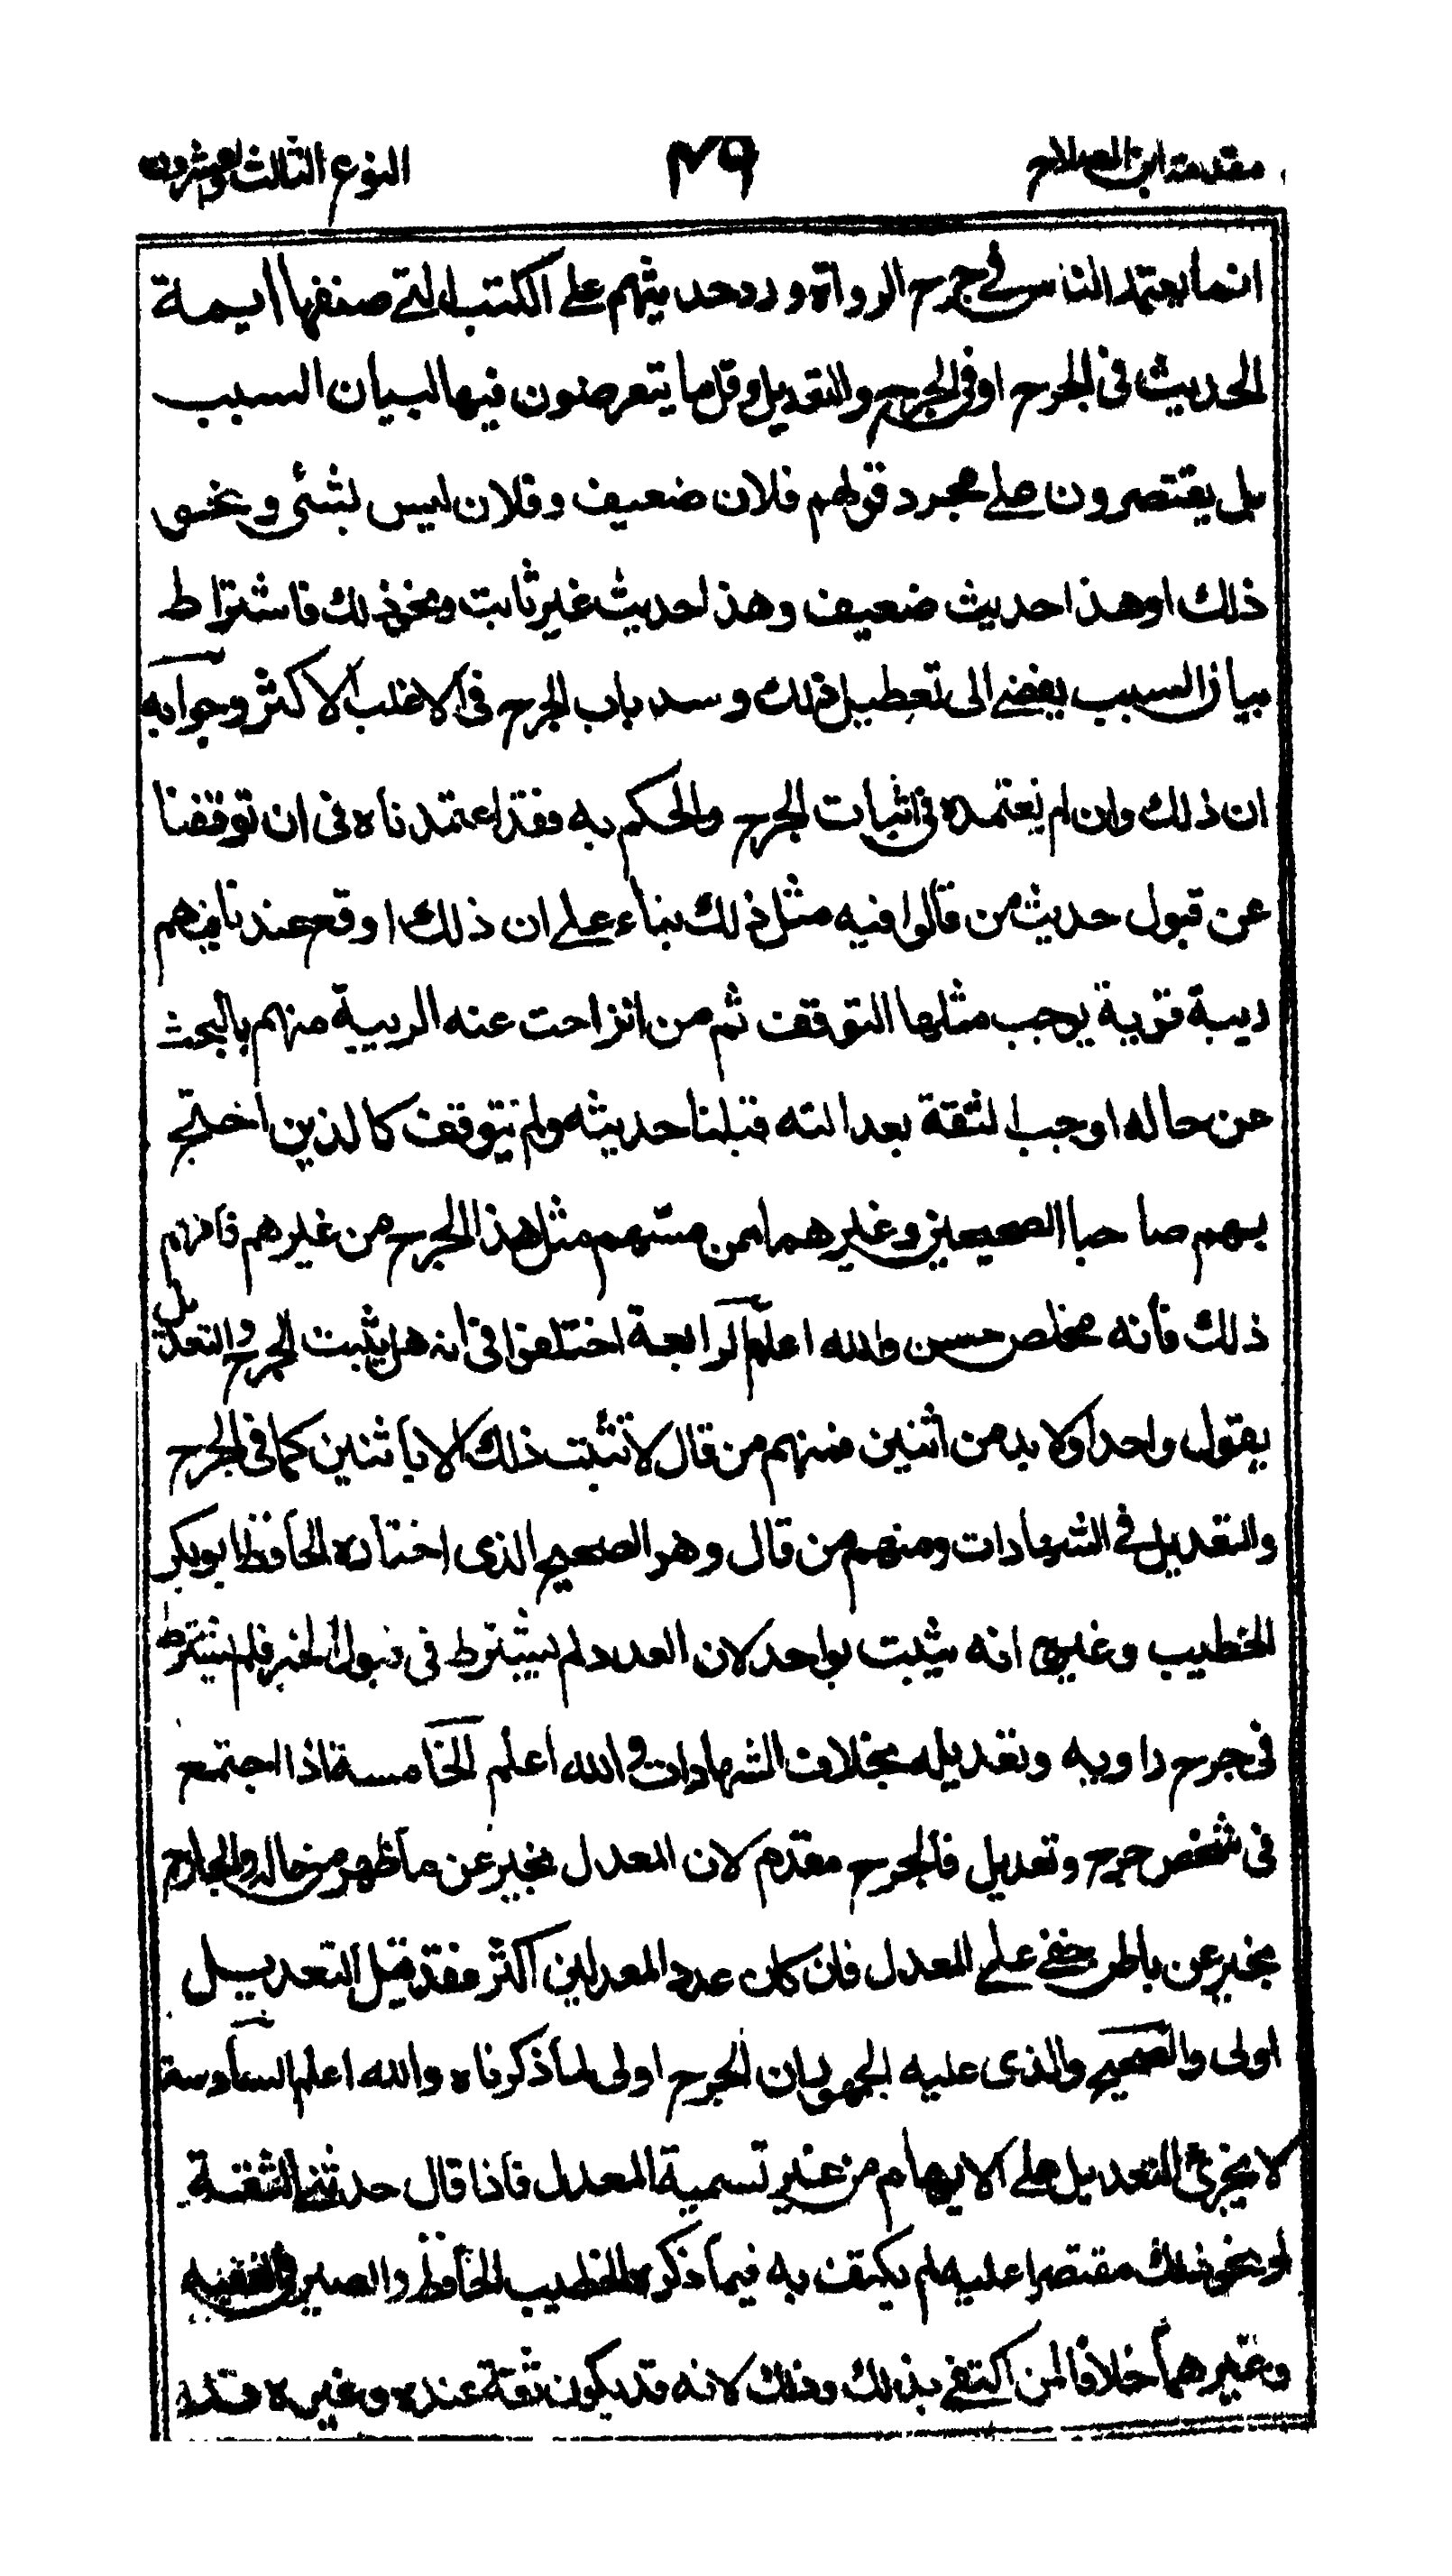 مقدمة ابن الصلاح ٤٩ النوع الثالث والعشرون
انما يعتمد الناس في جرح الرواة ورد حديثهم على الكتب التي صنفها ايمة
الحديث في الجرح او في الجرح والتعديل وقل ما يتعرضون فيها لبيان السبب
بل يقتصرون على مجرد قولهم فلان ضعيف وفلان ليس بشئ ونحو
ذلك او هذا حديث ضعيف وهذا حديث غير ثابت ونحو ذلك فاشتراط
بيان السبب يفضي الى تعطيل ذلك وسد باب الجرح في الاغلب الاكثر وجوابه
ان ذلك وان لم نعتمده في اثبات الجرح والحكم به فقد اعتمدناه في ان توقفنا
عن قبول حديث من قالوا فيه مثل ذلك بناء على ان ذلك اوقع عندنا فيهم
ريبة قوية يوجب مثلها التوقف ثم من انزاحت عنه الريبة منهم بالبحث
عن حاله اوجب الثقة بعدالته قبلنا حديثه ولم نتوقف كالذين احتج
بهم صاحبا الصحيحين وغيرهما ممن مسهم مثل هذا الجرح من غيرهم فافهم
ذلك فانه مخلص حسن والله اعلم الرابعة اختلفوا في انه هل يثبت الجرح والتعديل
بقول واحد او لا بد من اثنين فمنهم من قال لا تثبت ذلك الا باثنين كما في الجرح
والتعديل في الشهادات ومنهم من قال وهو الصحيح الذى اختاره الحافظ ابو بكر
الخطيب وغيره انه يثبت بواحد لان العدد لم يشترط في قبول الخبر فلم يشترط
في جرح راويه وتعديله بخلاف الشهادات والله اعلم الخامسة اذا اجتمع
في شخص جرح وتعديل فالجرح مقدم لان المعدل يخبر عن ما ظهر من حاله والجارح
يخبر عن باطن خفي على المعدل فان كان عدد المعدلين اكثر فقد قيل التعديل
اولى والصحيح والذى عليه الجمهور ان الجرح اولى لما ذكرناه والله اعلم السادسة
لا يجزئ التعديل على الابهام من غير تسمية المعدل فاذا قال حدثني الثقة
او نحو ذلك مقتصرا عليه لم يكتف به فيما ذكره الخطيب الحافظ والصيرفي الفقيه
وغيرهما خلافا لمن اكتفى بذلك وذلك لانه قد يكون ثقة عنده وغيره قد